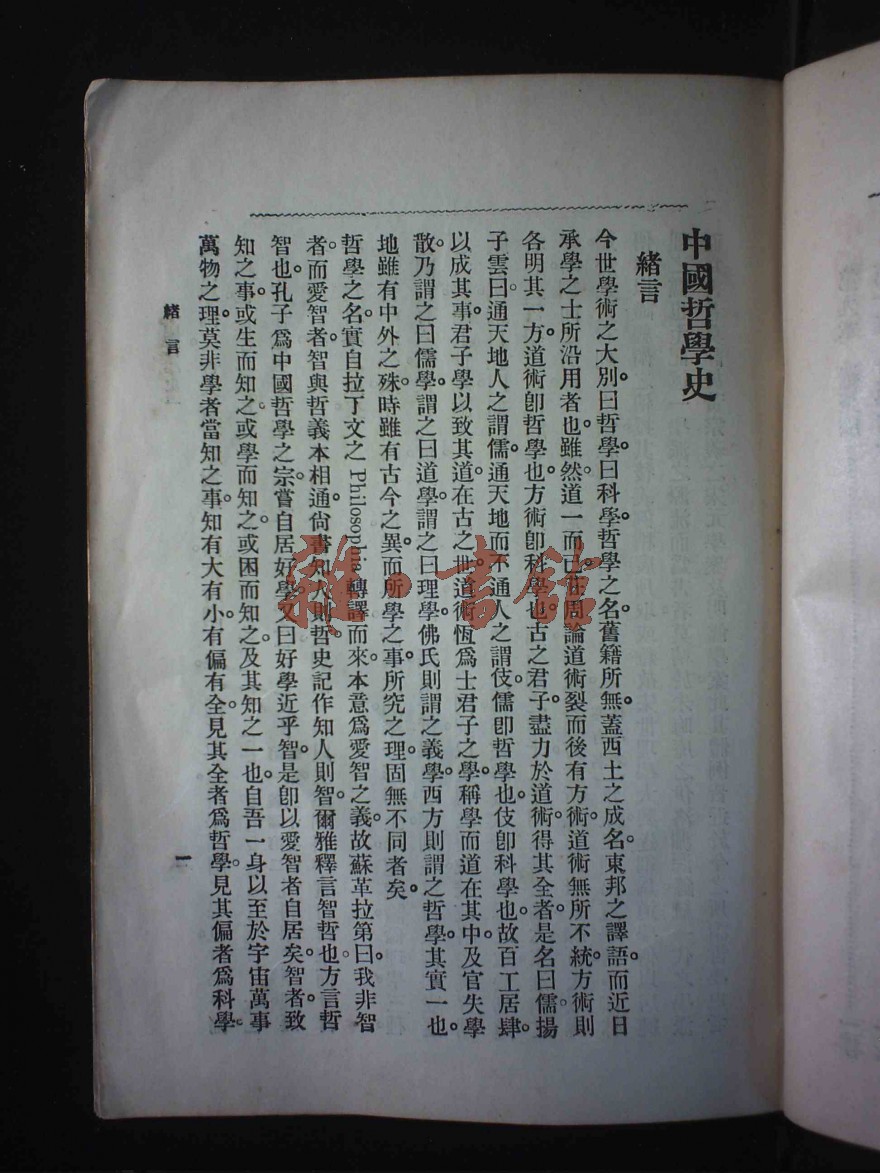 中國哲學史
緒言
今世學術之大別。曰哲學。曰科學。哲學之名。舊籍所無。蓋西土之成名。東邦之譯語。而近日
承學之士所沿用者也。雖然道一而已。在周論道術裂而後有方術。道術無所不統。方術則
各明其一方。道術卽哲學也。方術卽科學也。古之君子。盡力於道術。得其全者。是名曰儒。揚
子雲曰。通天地人之謂儒。通天地而不通人之謂伎。儒卽哲學也。伎卽科學也。故百工居肆
以成其事。君子學以致其道。在古之世。道術恆爲士君子之學。稱學而道在其中。及官失學
散。乃謂之曰儒學。謂之曰道學。謂之曰理學。佛氏則謂之義學。西方則謂之哲學。其實一也。
地雖有中外之殊。時雖有古今之異。而所學之事。所究之理。固無不同者矣。
哲學之名。實自拉丁文之 Philosophia 轉譯而來。本意爲愛智之義。故蘇革拉第曰。我非智
者。而愛智者。智與哲義本相通。尙書知人則哲。史記作知人則智。爾雅釋言。智哲也。方言哲
智也。孔子爲中國哲學之宗。嘗自居好學。又曰好學近乎智。是卽以愛智者自居矣。智者。致
知之事。或生而知之。或學而知之。或困而知之。及其知之一也。自吾一身以至於宇宙萬事
萬物之理。莫非學者當知之事。知有大有小。有偏有全。見其全者爲哲學。見其偏者爲科學。
緒言
一
雜·書館